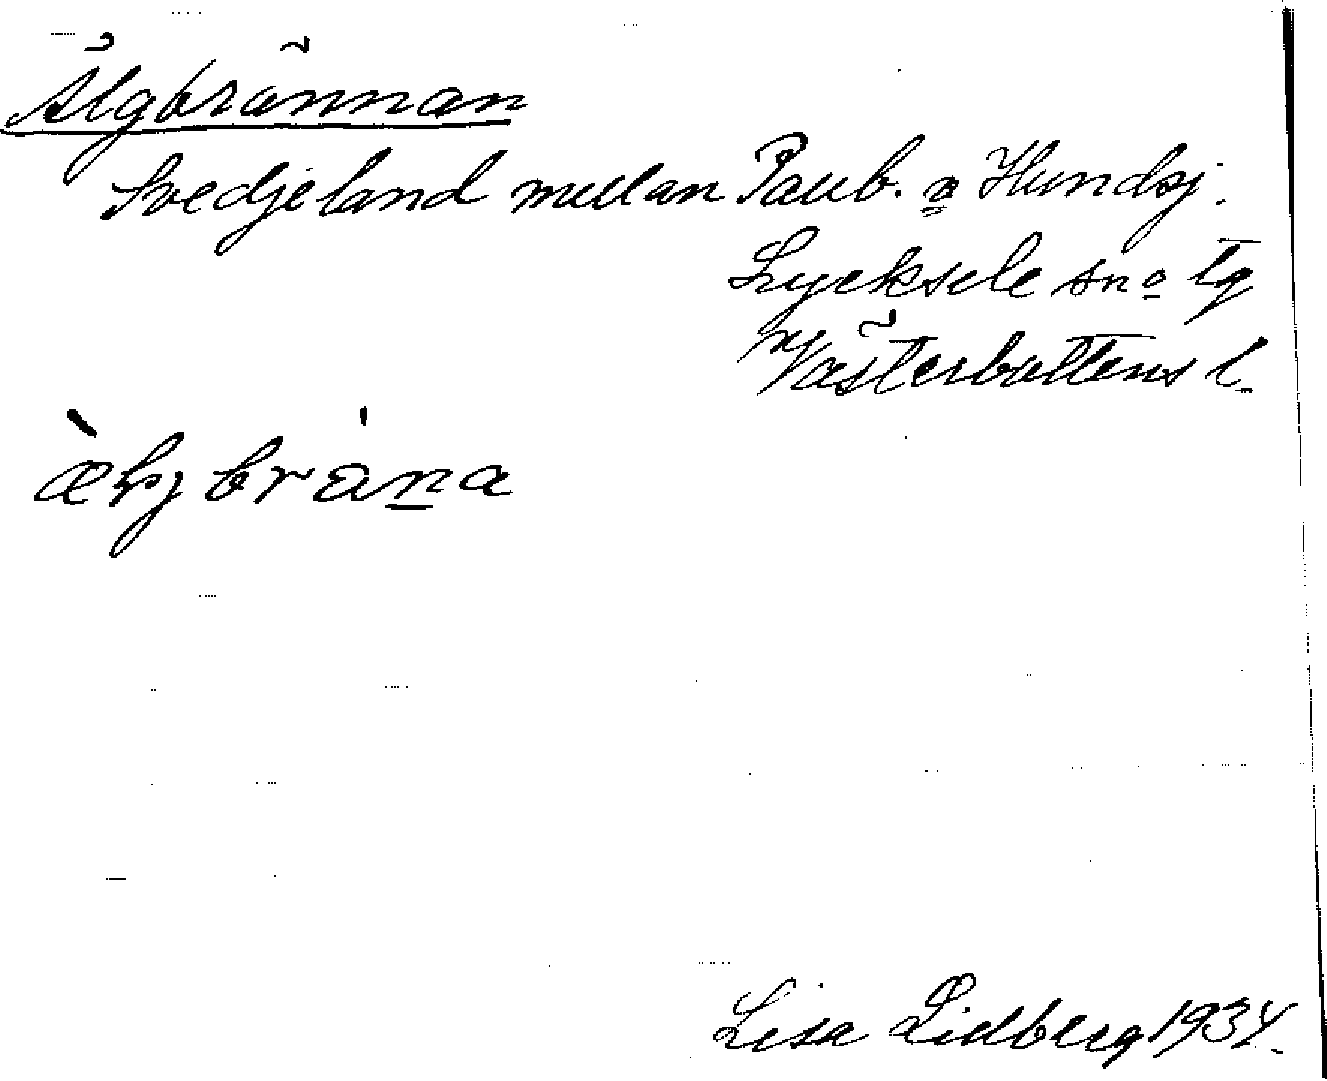 Älgbrännan
Svedjeland mellan Paub. o Hundsj.
Lycksele sn o tg
Västerbottens l.
Lisa Lidberg 1934.